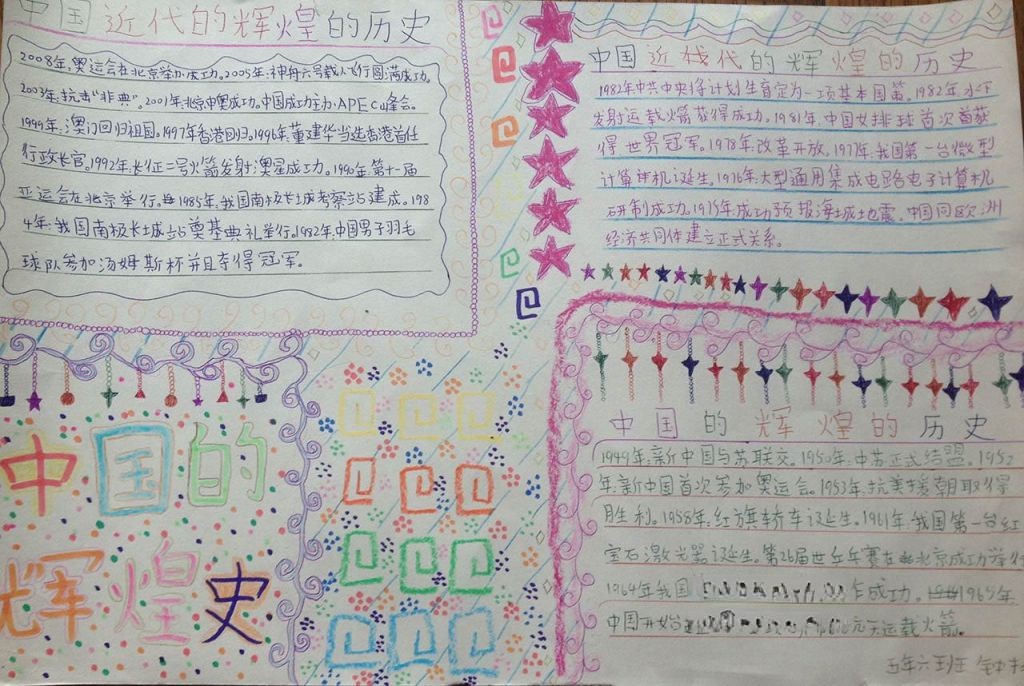 中国近代的辉煌的历史
2008年:奥运会在北京举办成功。2005年:神舟六号载人飞行圆满成功。
2003年:抗击"非典"。2001年:北京申奥成功。中国成功主办APEC山峰会。
1999年:澳门回归祖国。1997年香港回归。1996年董建华当选香港首任
行政长官。1992年:长征二号火箭发射:澳星成功。1990年第十一届
亚运会在北京举行。1985年:我国南极长城考察站建成。198
4年:我国南极长城站奠基典礼举行。1982年:中国男子羽毛
球队参加汤姆斯杯并且夺得冠军。
中国近代的辉煌的历史
1982年中共中央将计划生育定为一项基本国策。1982年水下
发射运载火箭获得成功。1981年,中国女排球首次首获
得世界冠军。1978年,改革开放。1977年,我国第一台微型
计算机诞生。1976年:大型通用集成电路电子计算机
研制成功。1975年成功预报海城地震。中国同欧洲
经济共同体建立正式关系。
中国的辉煌的历史
1949年:新中国与苏联交。1950年:中苏正式结盟。1952
年:新中国首次参加奥运会。1953年:抗美援朝取得
胜利。1958年:红旗轿车诞生。1961年:我国第一台红
宝石激光器诞生。第26届世乒乓赛在北京成功举行
1964年我国 作成功。1965年
中国开始 运载火箭。
五年六班 钟
中国的
辉煌史